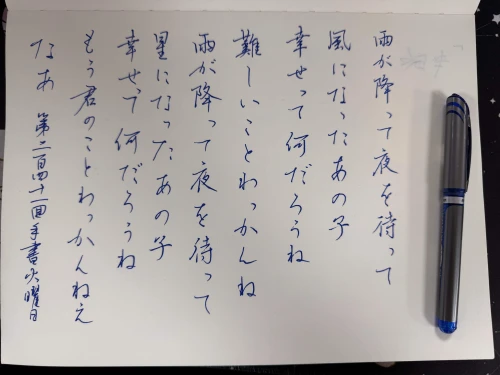 雨が降って夜を待って
風になったあの子
幸せって何だろうね
難しいことわっかんね
雨が降って夜を待って
星になったあの子
幸せって何だろうね
もう君のことわっかんねえ
なあ
第二百四十一回手書火曜日